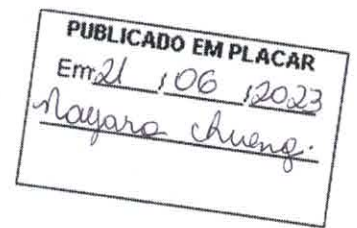 PUBLICADO EM PLACAR
Em 21 / 06 / 2023
Nayara